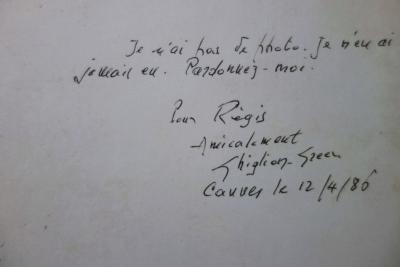 Je n'ai pas de photo. Je n'en ai
jamais eu. Pardonnez-moi.
Pour Régis
Amicalement
Ghiglion-Green
Cannes le 12/4/86